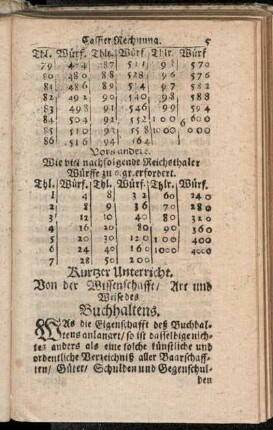 Cassier Rechnung. 5
Thl. Würf. Thlr. Würf. Thlr. Würf.
79 474 87 522 95 570
80 480 88 528 96 576
81 486 89 534 97 582
82 492 90 540 98 588
83 498 91 546 99 594
84 504 92 552 100 600
85 510 93 558
86 516 94 564
Vors andere.
Wie viel nachfolgende Reichsthaler
Würffe zu 6. gr. erfordert.
Thl. Würf. Thl. Würf. Thlr. Würf.
1 4 8 32 60 240
2 8 9 36 70 280
3 12 10 40 80 320
4 16 20 80 90 360
5 20 30 120 100 400
6 24 40 160 1000 4000
7 28 50 200
Kurtzer Unterricht.
Von der Wissenschafft / Art und
Weise des
Buchhaltens.
WAs die Eigenschafft deß Buchhal-
tens anlanget / so ist dasselbige nich-
tes anders als eine solche künstliche und
ordentliche Verzeichniß aller Baarschaff-
ten / Güter / Schulden und Gegenschul-
den